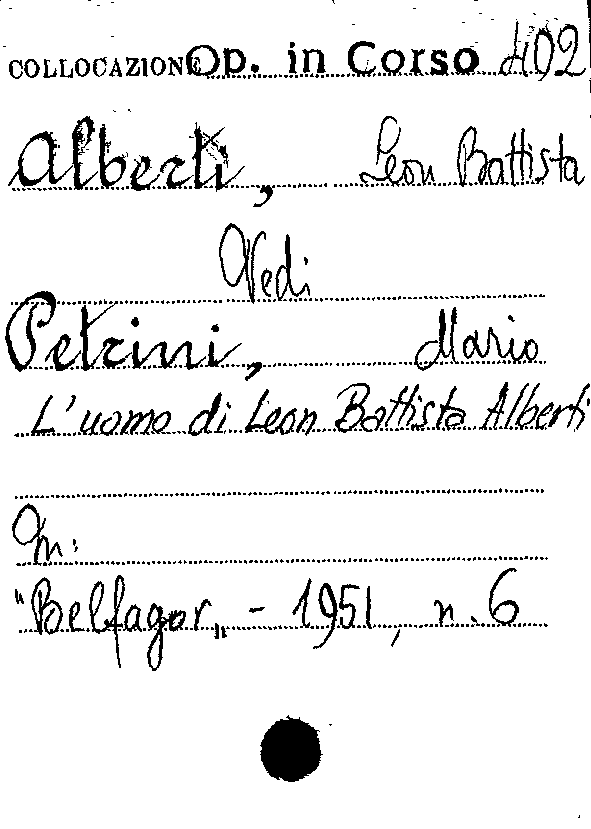 COLLOCAZIONE Op. in Corso 402
Alberti, Leon Battista
Vedi
Petrini, Mario
L'uomo di Leon Battista Alberti
In:
"Belfagor„ - 1951, n. 6